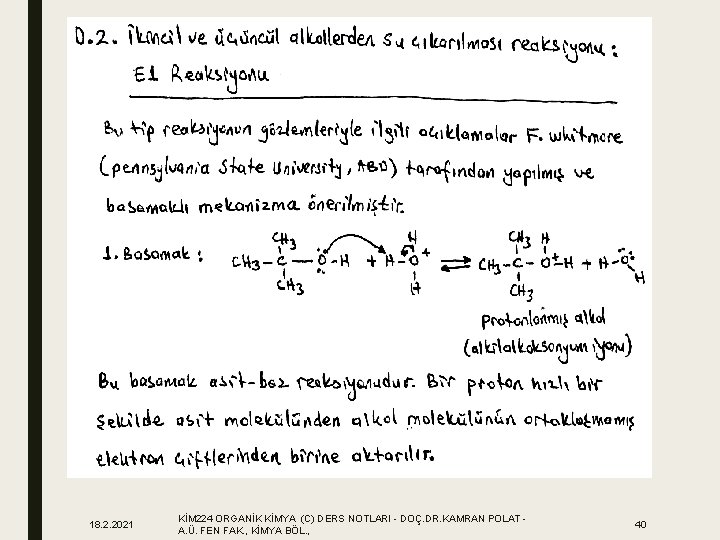 D.2. İkincil ve üçüncül alkollerden su çıkarılması reaksiyonu :
E1 Reaksiyonu
Bu tip reaksiyonun gözlemleriyle ilgili açıklamalar F. Whitmore
(pennsylvania State University, ABD) tarafından yapılmış ve
basamaklı mekanizma önerilmiştir.
CH3 H CH3 H
1. Basamak : CH3-C-O-H + H-O+ ⇌ CH3-C-O+-H + H-O
CH3 H CH3 H
protonlanmış alkol
(alkilalkoksonyum iyonu)
Bu basamak asit-baz reaksiyonudur. Bir proton hızlı bir
şekilde asit molekülünden alkol molekülünün ortaklaşmamış
elektron çiftlerinden birine aktarılır.
18.2.2021
KİM 224 ORGANİK KİMYA (C) DERS NOTLARI - DOÇ.DR.KAMRAN POLAT -
A.Ü. FEN FAK., KİMYA BÖL.,
40